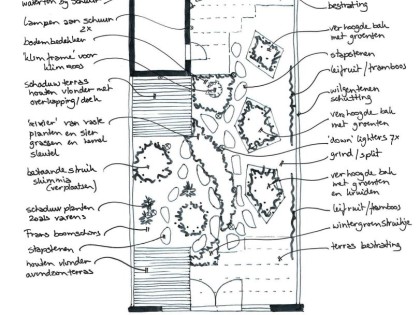 waterton bij schuur
Lampen aan schuur
2x
bodembedekker
'klimframe' voor
klimroos
schaduw terras
houten vlonder met
overkapping/doek
'rivier' van vaste
planten en sier
grassen en borrel
sleutel
bestaande struik
skimmia
(verplaatsen)
schaduw planten
zoals varens
Frans boomschors
stapstenen
houten vlonder
avondzonterras
bestrating
verhoogde bak
met groenten
stapstenen
leifruit/framboos
wilgentenen
schutting
verhoogde bak
met groenten
'down'lighters 7x
grind/split
verhoogde bak
met groenten
en kruiden
leifruit/framboos
wintergroen struikje
terras bestrating